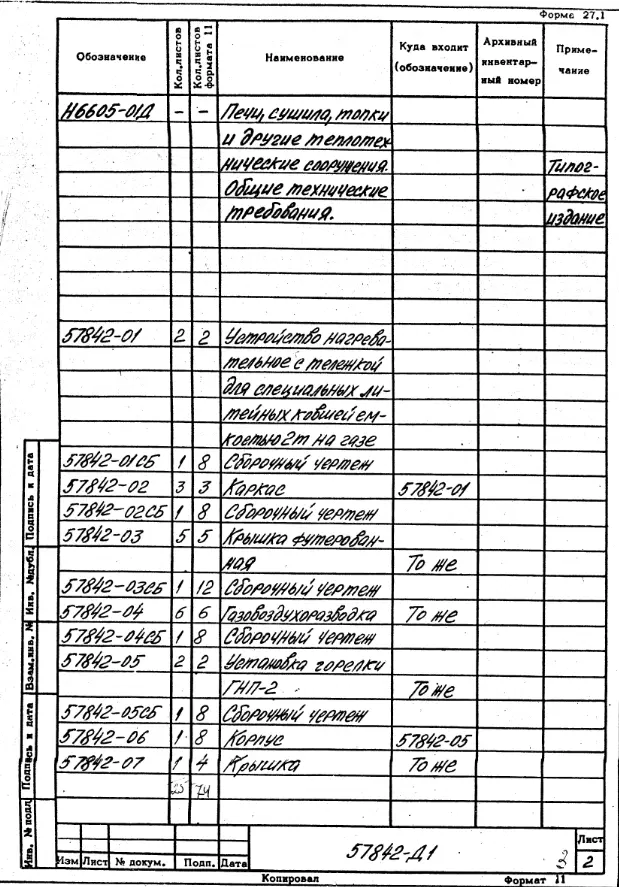 Форма 27.1
Обозначение Кол.листов Кол.листов формата 11 Наименование Куда входит (обозначение) Архивный инвентар- ный номер Приме- чание
Н6605-01Д – – Печи, сушила, топки
и другие теплотех
нические сооружения. Типог-
Общие технические рафское
требования. издание
57842-01 2 2 Устройство нагрева-
тельное с тележкой
для специальных ли-
тейных ковшей ем-
костью 2т на газе
57842-01СБ 1 8 Сборочный чертеж
57842-02 3 3 Каркас 57842-01
57842-02СБ 1 8 Сборочный чертеж
57842-03 5 5 Крышка футерован-
ная То же
57842-03СБ 1 12 Сборочный чертеж
57842-04 6 6 Газовоздухоразводка То же
57842-04СБ 1 8 Сборочный чертеж
57842-05 2 2 Установка горелки
ГНП-2 То же
57842-05СБ 1 8 Сборочный чертеж
57842-06 1 8 Корпус 57842-05
57842-07 1 4 Крышка То же
25 74
Инв. № подл Подпись и дата Взам.инв. № Инв. №дубл. Подпись и дата
57842-Д1
Лист
2
Изм Лист № докум. Подп. Дата
Копировал Формат 11